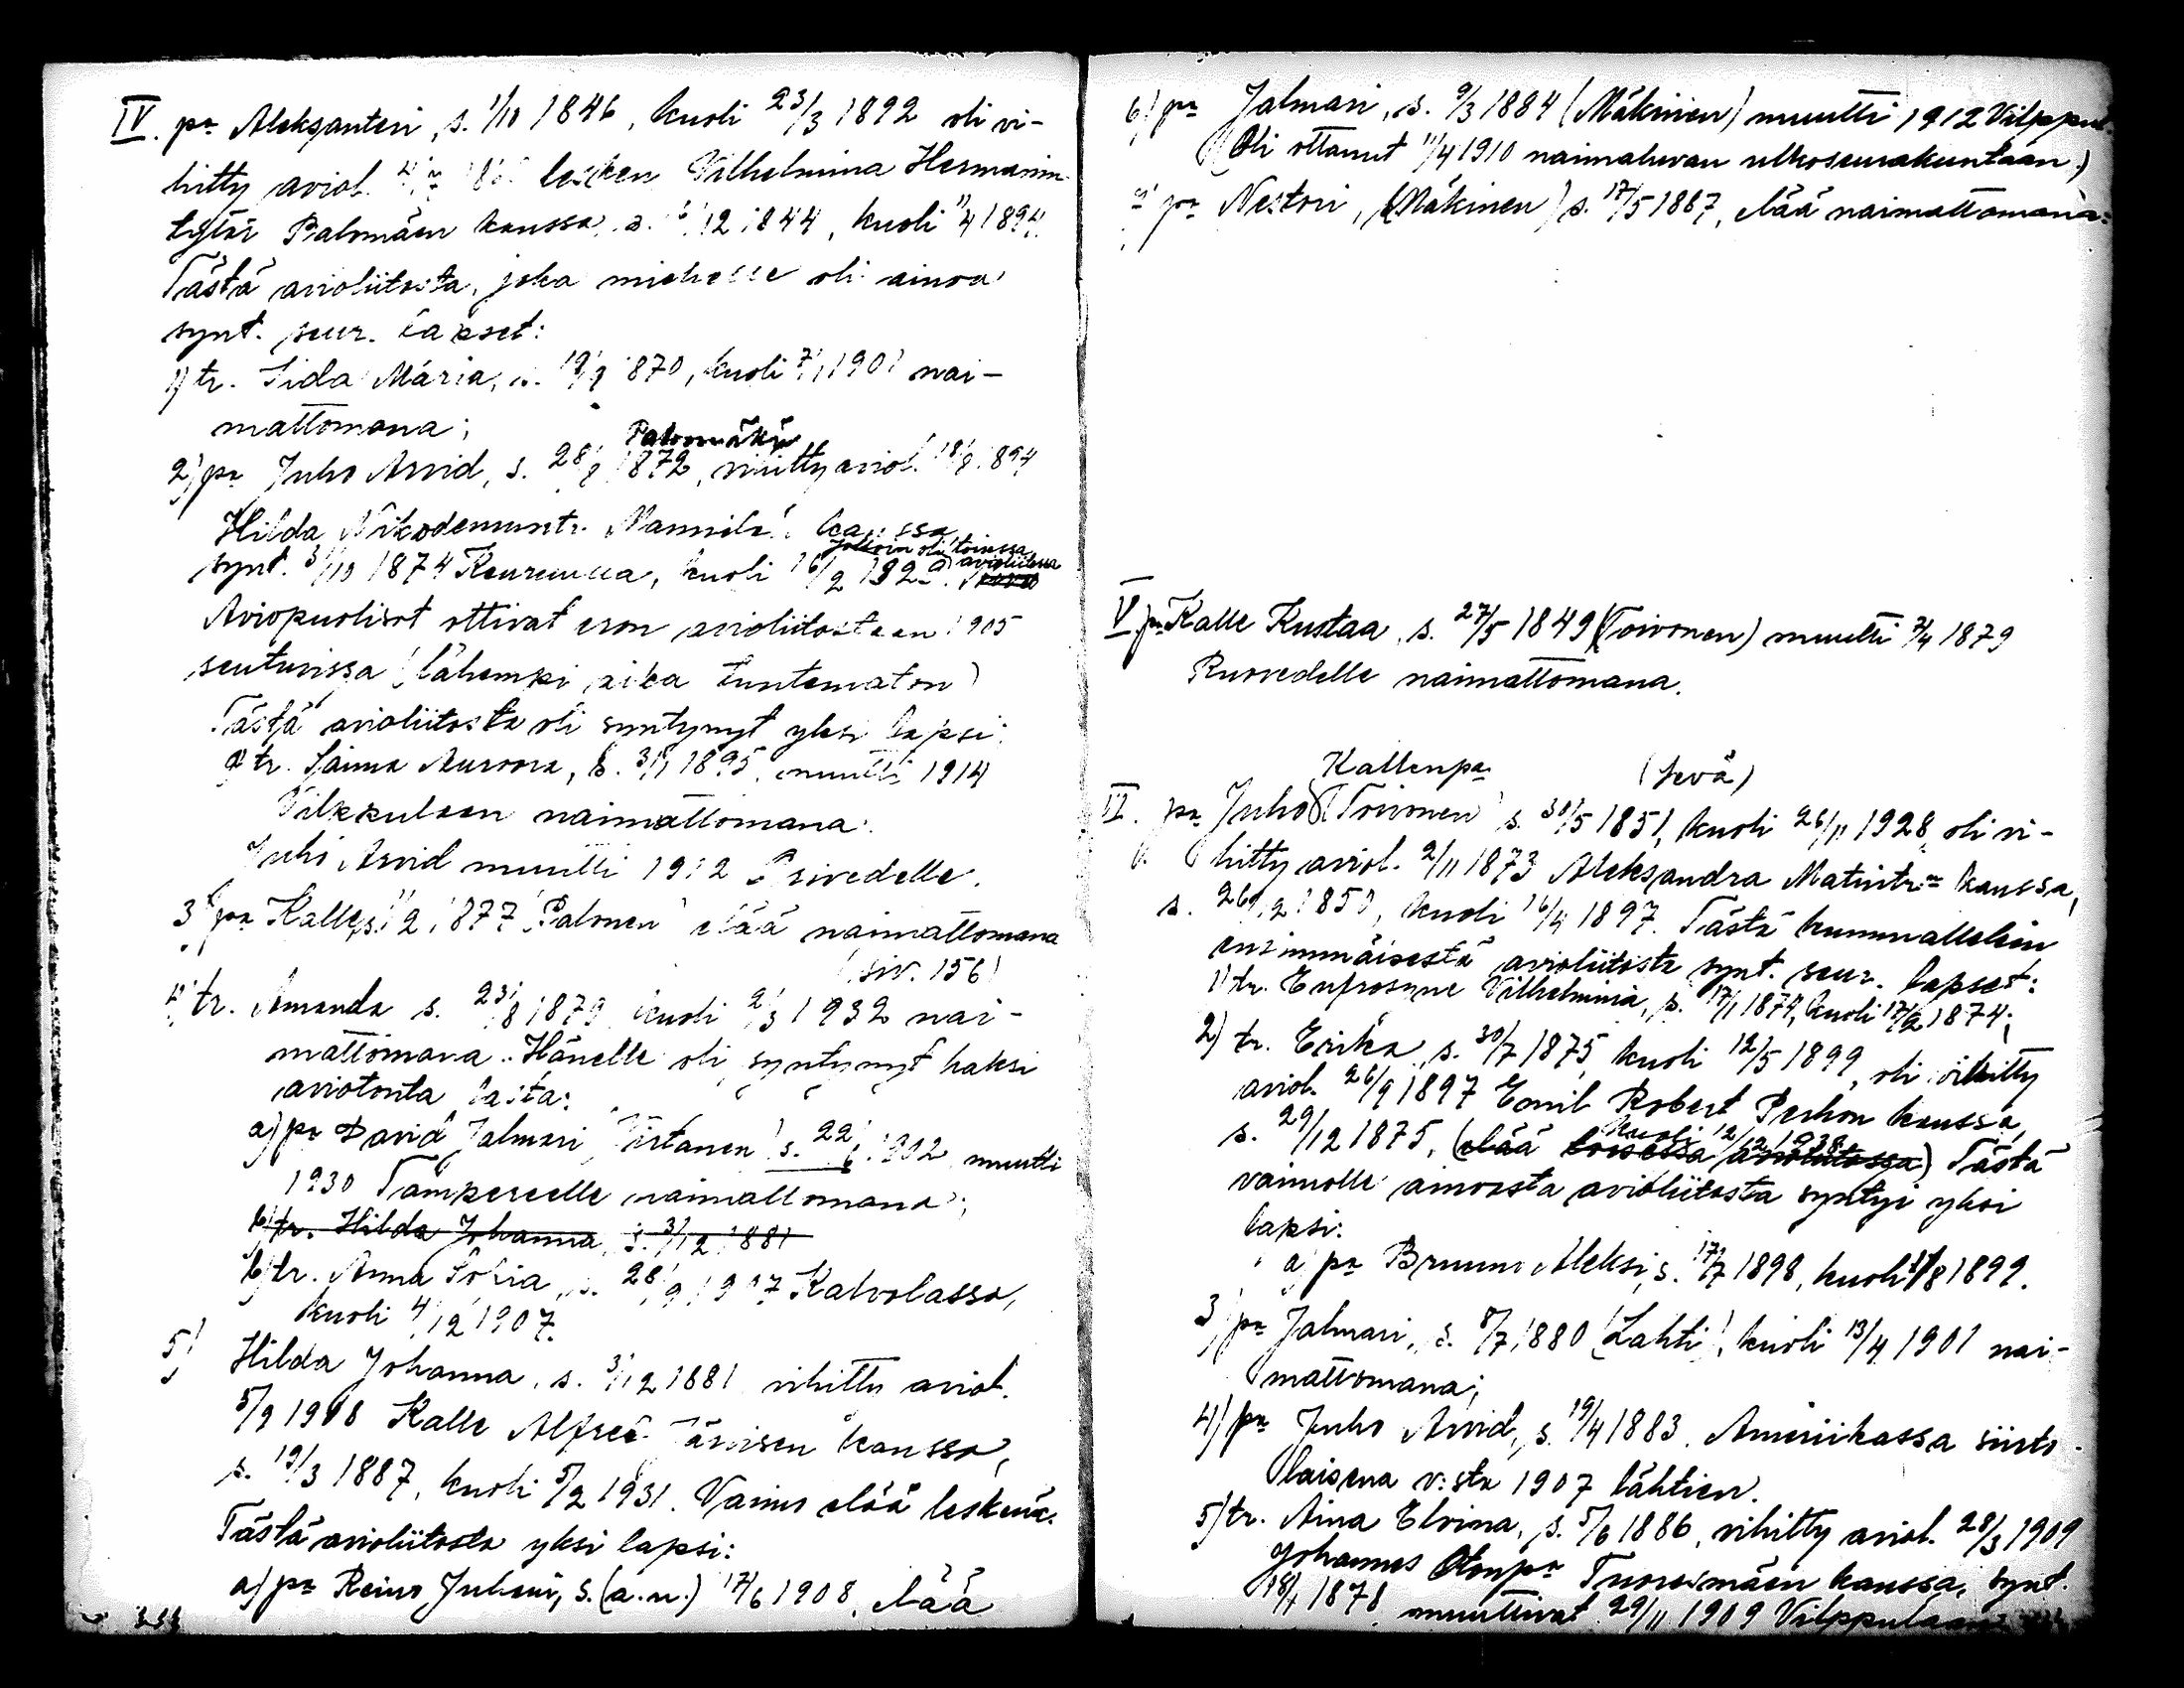 IV. pa Aleksanteri, s. 1/10 1846, kuoli 23/3 1892 oli vi-
hitty aviol. lesken Vilhelmina Hermanin
tytär Palomäen kanssa, s. 12 1844, kuoli 11/4 1894.
Tästä avioliitosta, joka miehelle oli ainoa
synt. seur. lapset:
1) tr. Iida Maria, s. 19/9 1870, kuoli 7/1 1901 nai-
mattomana;
Palomäki
2) pa Juho Arvid, s. 28/8 1872, vihitty aviol. 18/8 1894
Hilda Nikodemuntr. kanssa
jolloin oli toisessa
synt. 31/10 1874 Keuruulla, kuoli 16/2 192 avioliitossa
Aviopuolisot ottivat eron avioliitostaan 1905
seutuvissa (lähempi aika tuntematon)
Tästä avioliitosta oli syntynyt yksi lapsi:
a) tr. Saima Aurora, s. 31/1 1895, muutti 1914
Vilppulaan naimattomana.
Juho Arvid muutti 1912
3) pa Kalle, s. 11/2 1877 (Palonen) elää naimattomana
(siv. 156)
4) tr. Amanda s. 23/8 1879 kuoli 2/3 1932 nai-
mattomana. Hänelle oli syntynyt kaksi
aviotonta lasta:
a) pa David Jalmari s. 22/6 1902 muutti
1930 Tampereelle naimattomana;
b) tr. Hilda Johanna, s. 3/12 1881
b) tr. Anna Sofia, s. 28/9 1907 Kalvolassa,
kuoli 4/12 1907.
5) Hilda Johanna, s. 3/12 1881 vihitty aviol.
5/9 1908 Kalle Alfred kanssa,
s. 19/3 1887, kuoli 5/2 1931. Vaimo elää leskenä.
Tästä avioliitosta yksi lapsi:
a) pa Reino Juhani, s. (a.u.) 17/6 1908, elää
6) pa Jalmari, s. 9/3 1884 (Mäkinen) muutti 1912 Vilppul
(Oli ottanut 11/4 1910 naimaluvan ulkoseurakuntaan.)
7) pa Nestori, (Mäkinen) s. 17/5 1887, elää naimattomana.
V. pa Kalle Kustaa, s. 27/5 1849 (Toivonen) muutti 7/4 1879
Ruovedelle naimattomana.
Kallenpa (Sevä)
VI. pa Juho (Toivonen) s. 30/5 1851, kuoli 26/11 1928, oli vi-
hitty aviol. 2/11 1873 Aleksandra Matintr:n kanssa,
s. 26/2 1850, kuoli 16/4 1897. Tästä kummallekin
ensimmäisestä avioliitosta synt. seur. lapset:
1) tr. Eufrosyne Vilhelmina, s. 17/1 1874, kuoli 17/2 1874;
2) tr. Erika, s. 30/7 1875, kuoli 12/5 1899, oli vihitty
aviol. 26/9 1897 Emil Robert Perhon kanssa,
kuoli 12/12 1938
s. 29/12 1875, (elää toisessa avioliitossa) Tästä
vaimolle ainoasta avioliitosta syntyi yksi
lapsi:
a) pa Bruuno Aleksi, s. 17/7 1898, kuoli 1/8 1899.
3) pa Jalmari, s. 8/7 1880 (Lahti), kuoli 13/4 1901 nai-
mattomana;
4) pa Juho Arvid, s. 19/4 1883. Ameriikassa siirto-
laisena v:sta 1907 lähtien.
5) tr. Aina Elvina, s. 5/6 1886, vihitty aviol. 28/3 1909
Johannes Otonpa Tuoresmäen kanssa, synt.
18/1 1878 muuttivat 29/11 1909 Vilppulaan